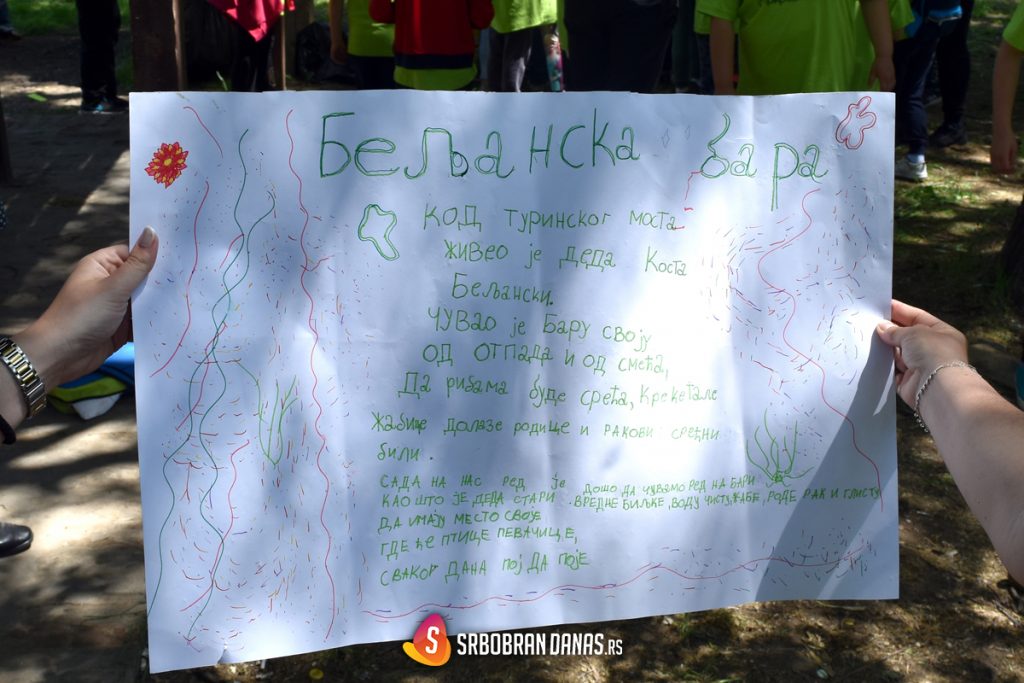 Бељанска бара
КОД ТУРИНСКОГ МОСТА
ЖИВЕО ЈЕ ДЕДА КОСТА
БЕЉАНСКИ.
ЧУВАО ЈЕ БАРУ СВОЈУ
ОД ОТПАДА И ОД СМЕЋА,
ДА РИБАМА БУДЕ СРЕЋА, КРЕКЕТАЛЕ
ЖАБИЦЕ ДОЛАЗЕ РОДИЦЕ И РАКОВИ СРЕЋНИ
БИЛИ.
САДА НА НАС РЕД ЈЕ ДОШО ДА ЧУВАМО РЕД НА БАРИ
КАО ШТО ЈЕ ДЕДА СТАРИ. ВРЕДНЕ БИЉКЕ, ВОДУ ЧИСТУ, ЖАБЕ, РОДЕ РАК И ГЛИСТУ
ДА ИМАЈУ МЕСТО СВОЈЕ
ГДЕ ЋЕ ПТИЦЕ ПЕВАЧИЦЕ,
СВАКОГ ДАНА ПОЈ ДА ПОЈЕ
SRBOBRAN DANAS.RS